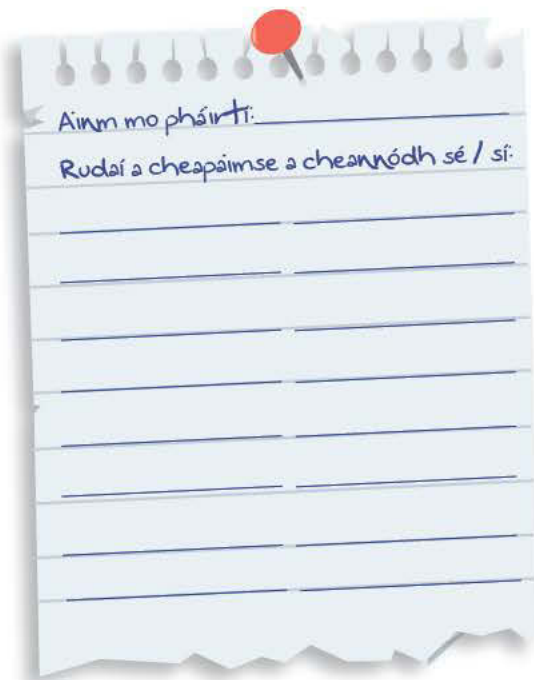 Ainm mo pháirtí:
Rudaí a cheapaimse a cheannódh sé / sí: